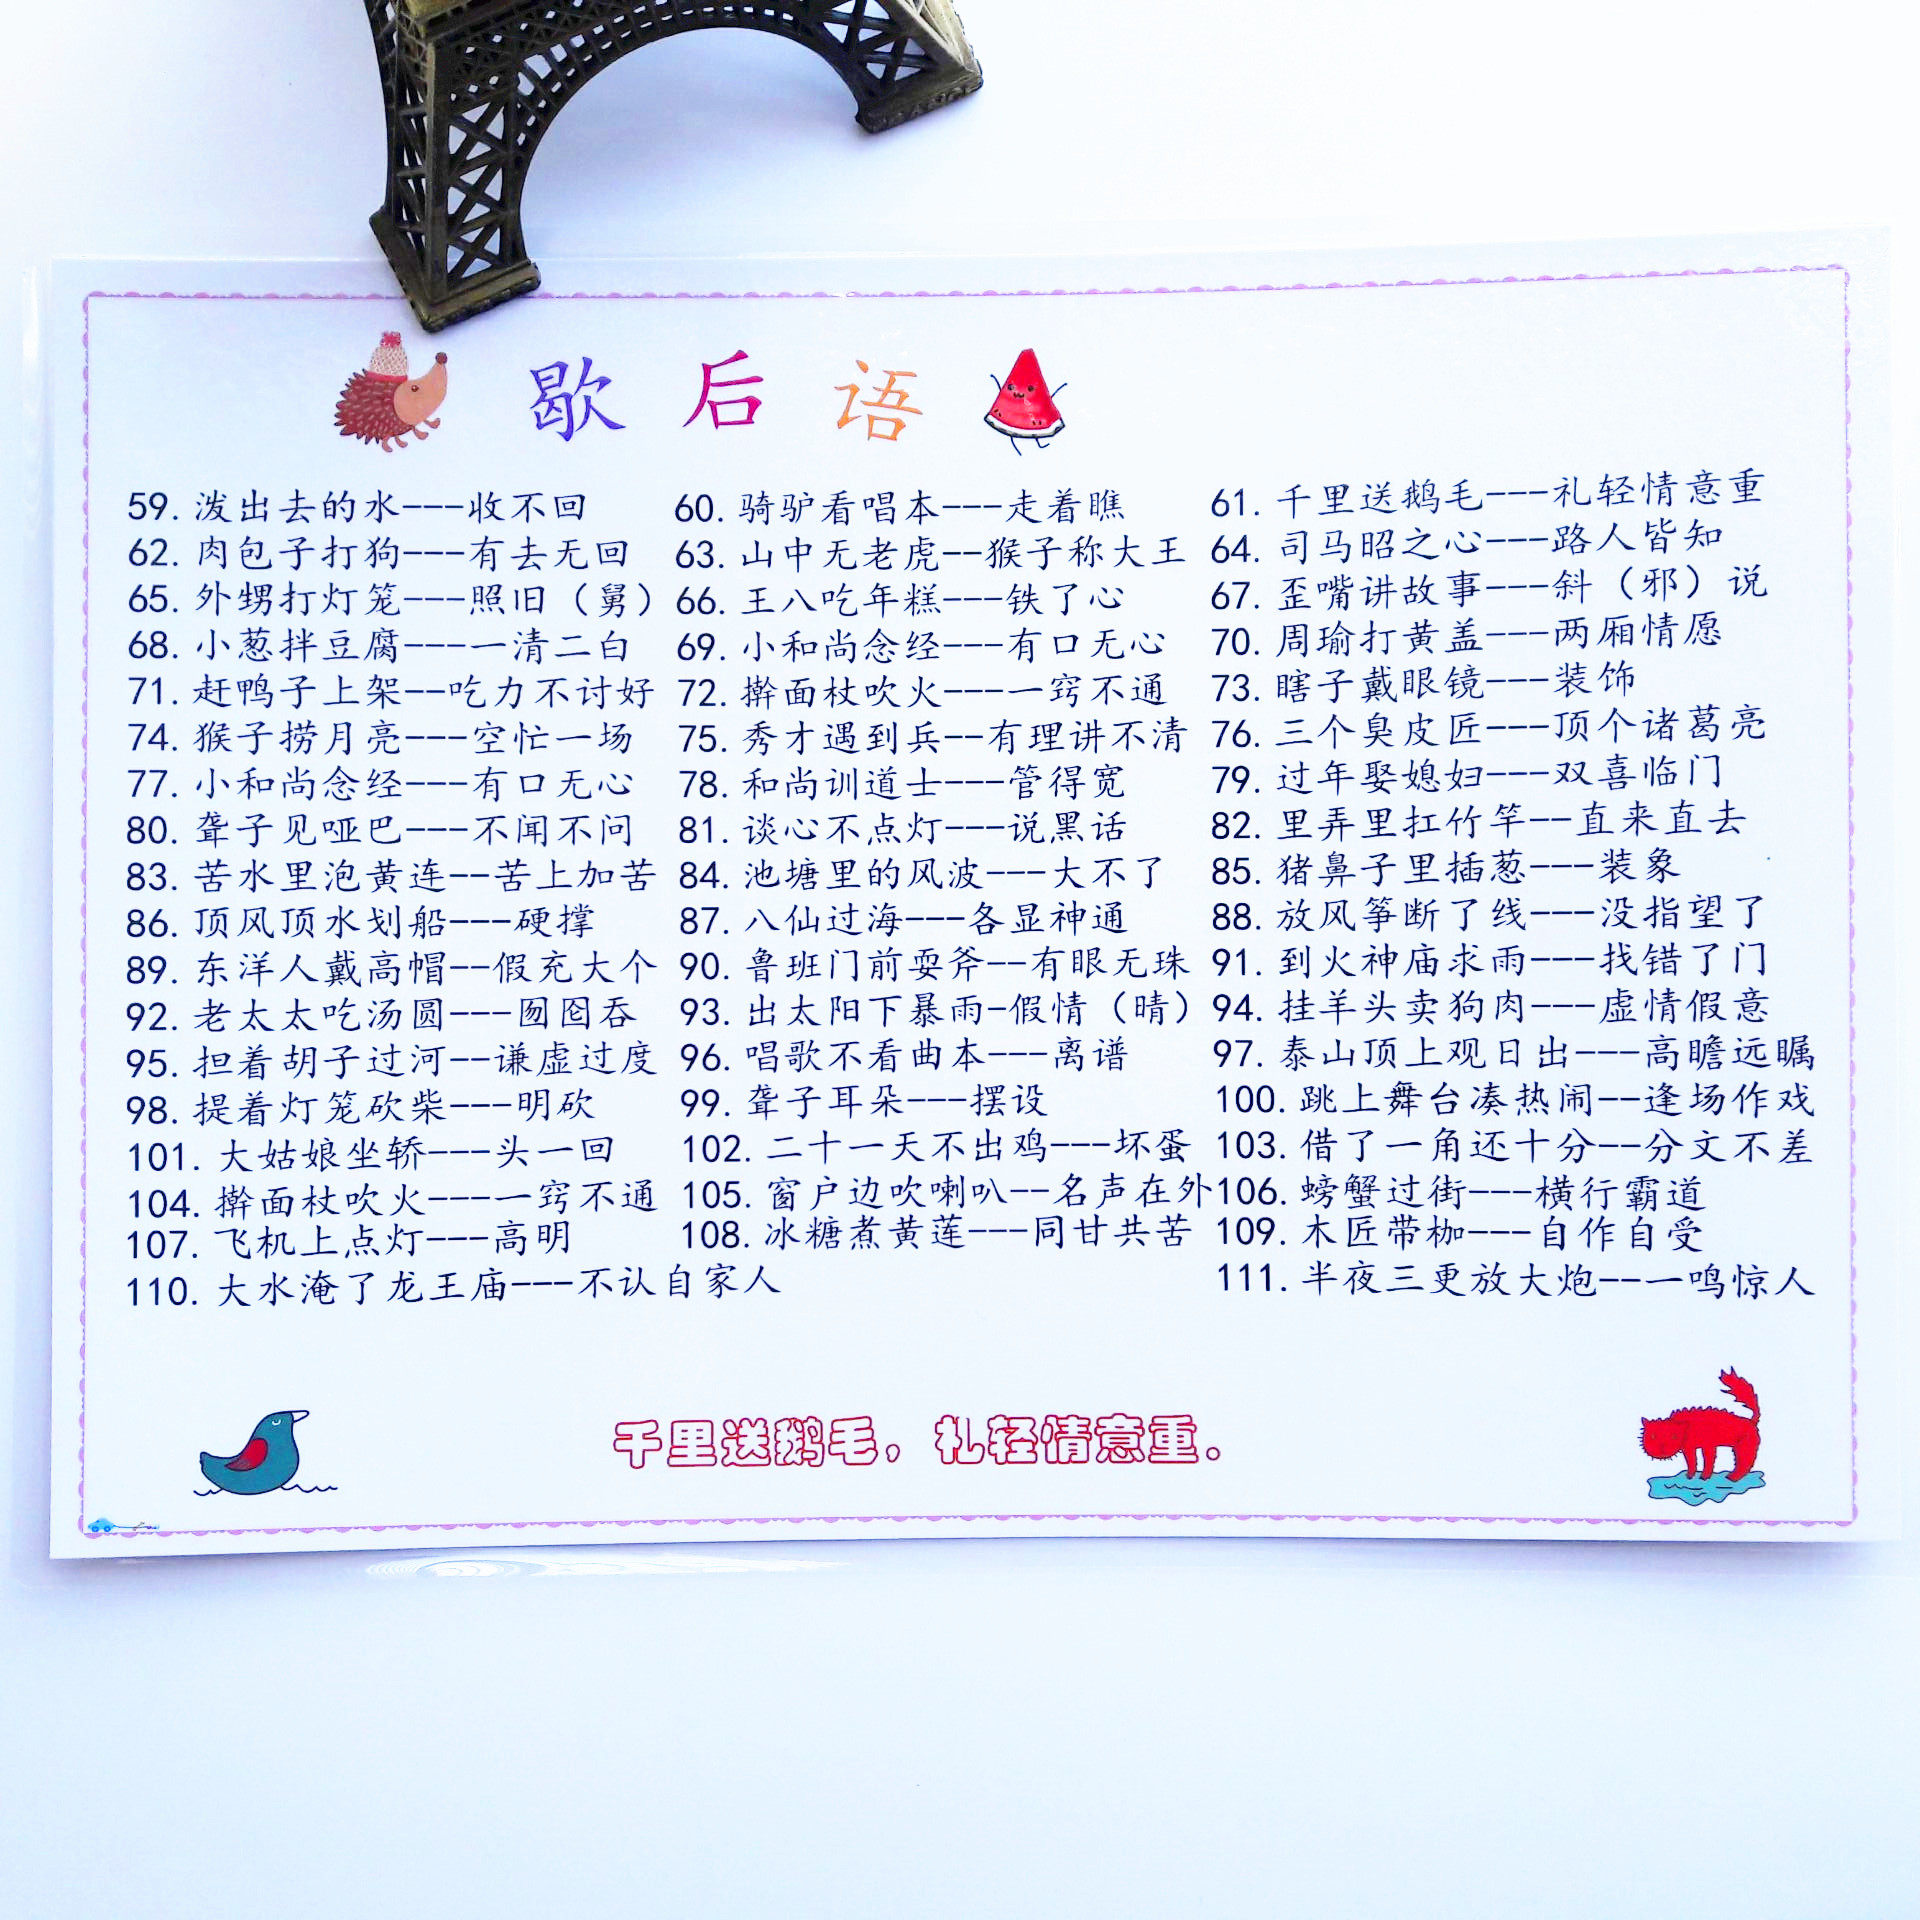 歇后语
59.泼出去的水---收不回 60.骑驴看唱本---走着瞧 61.千里送鹅毛---礼轻情意重
62.肉包子打狗---有去无回 63.山中无老虎--猴子称大王 64.司马昭之心---路人皆知
65.外甥打灯笼---照旧（舅） 66.王八吃年糕---铁了心 67.歪嘴讲故事---斜（邪）说
68.小葱拌豆腐---一清二白 69.小和尚念经---有口无心 70.周瑜打黄盖---两厢情愿
71.赶鸭子上架--吃力不讨好 72.擀面杖吹火---一窍不通 73.瞎子戴眼镜---装饰
74.猴子捞月亮---空忙一场 75.秀才遇到兵--有理讲不清 76.三个臭皮匠---顶个诸葛亮
77.小和尚念经---有口无心 78.和尚训道士---管得宽 79.过年娶媳妇---双喜临门
80.聋子见哑巴---不闻不问 81.谈心不点灯---说黑话 82.里弄里扛竹竿--直来直去
83.苦水里泡黄连--苦上加苦 84.池塘里的风波---大不了 85.猪鼻子里插葱---装象
86.顶风顶水划船---硬撑 87.八仙过海---各显神通 88.放风筝断了线---没指望了
89.东洋人戴高帽--假充大个 90.鲁班门前耍斧--有眼无珠 91.到火神庙求雨---找错了门
92.老太太吃汤圆---囫囵吞 93.出太阳下暴雨-假情（晴） 94.挂羊头卖狗肉---虚情假意
95.担着胡子过河--谦虚过度 96.唱歌不看曲本---离谱 97.泰山顶上观日出---高瞻远瞩
98.提着灯笼砍柴---明砍 99.聋子耳朵---摆设 100.跳上舞台凑热闹--逢场作戏
101.大姑娘坐轿---头一回 102.二十一天不出鸡---坏蛋 103.借了一角还十分--分文不差
104.擀面杖吹火---一窍不通 105.窗户边吹喇叭--名声在外 106.螃蟹过街---横行霸道
107.飞机上点灯---高明 108.冰糖煮黄莲---同甘共苦 109.木匠带枷---自作自受
110.大水淹了龙王庙---不认自家人 111.半夜三更放大炮--一鸣惊人
千里送鹅毛，礼轻情意重。